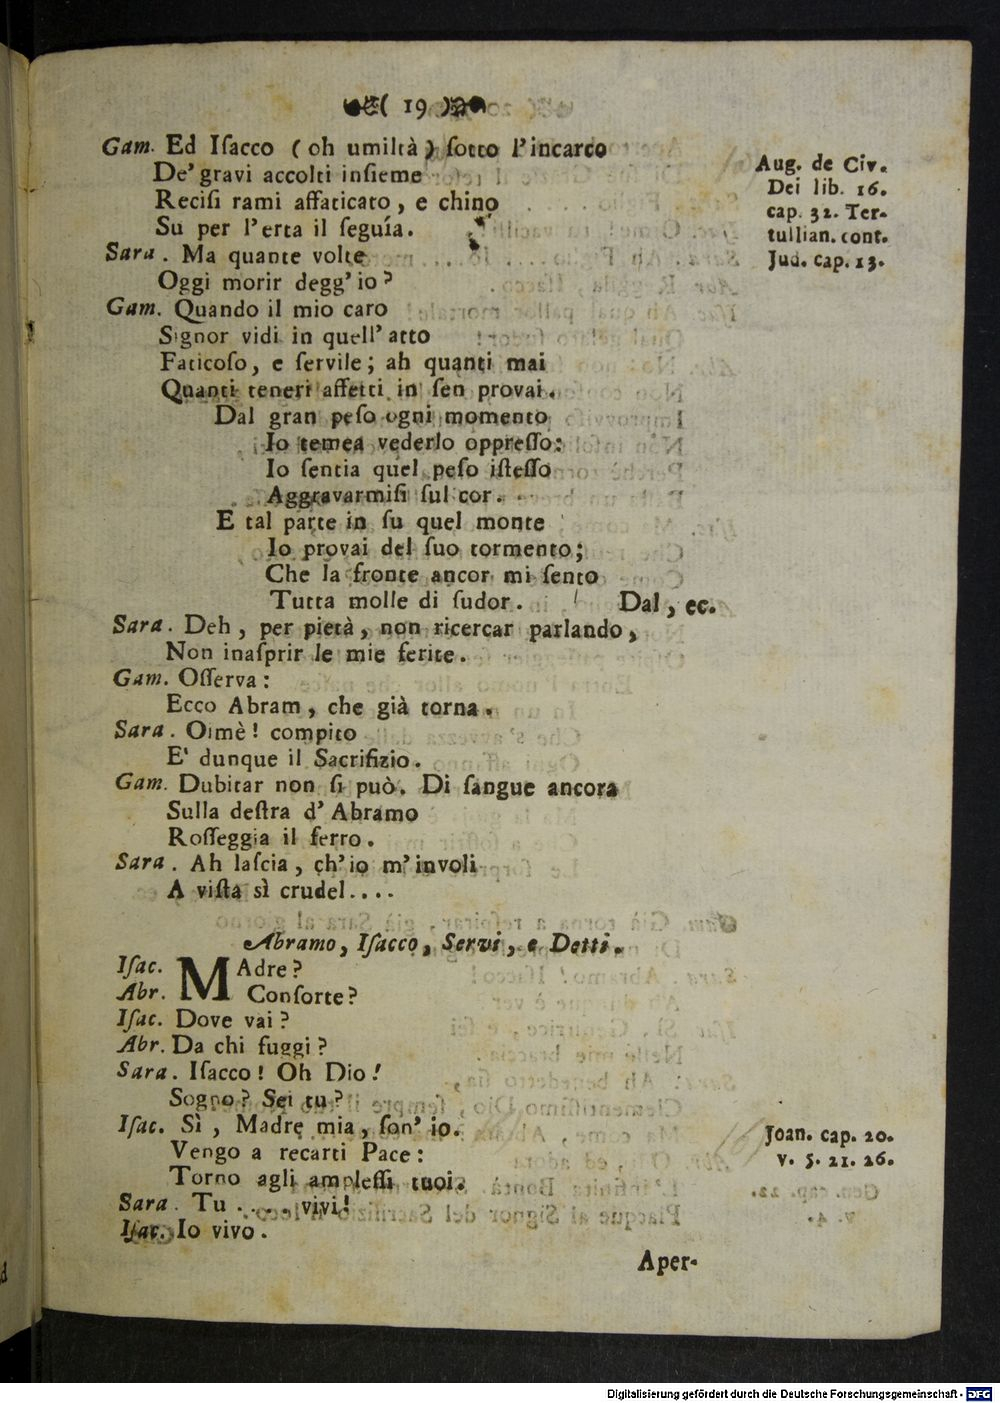 ( 19 )
Gam. Ed Iſacco ( oh umiltà ) ſotto l'incarco
De' gravi accolti inſieme
Reciſi rami affaticato, e chino
Su per l'erta il ſeguía.
Aug. de Civ.
Dei lib. 16.
cap. 32. Ter-
tullian. cont.
Jud. cap. 13.
Sara. Ma quante volte
Oggi morir degg' io?
Gam. Quando il mio caro
Signor vidi in quell' atto
Faticoſo, e ſervile; ah quanti mai
Quanti teneri affetti in ſen provai.
Dal gran peſo ogni momento
Io temea vederlo oppreſſo:
Io ſentia quel peſo iſteſſo
Aggravarmiſi ſul cor.
E tal parte in ſu quel monte
Io provai del ſuo tormento;
Che la fronte ancor mi ſento
Tutta molle di ſudor. Dal, ec.
Sara. Deh, per pietà, non ricercar parlando,
Non inaſprir le mie ferite.
Gam. Oſſerva:
Ecco Abram, che già torna.
Sara. Oimè! compito
E' dunque il Sacrifizio.
Gam. Dubitar non ſi può. Di ſangue ancora
Sulla deſtra d' Abramo
Roſſeggia il ferro.
Sara. Ah laſcia, ch' io m' involi
A viſta sì crudel....
Abramo, Iſacco, Servi, e Detti.
Iſac. MAdre?
Abr. Conſorte?
Iſac. Dove vai?
Abr. Da chi fuggi?
Sara. Iſacco! Oh Dio!
Sogno? Sei tu?
Iſac. Sì, Madre mia, ſon' io.
Vengo a recarti Pace:
Torno agli ampleſſi tuoi.
Joan. cap. 20.
v. 5. 21. 26.
Sara. Tu .... vivi!
Iſac. Io vivo.
Aper-
Digitalisierung gefördert durch die Deutsche Forschungsgemeinschaft - DFG